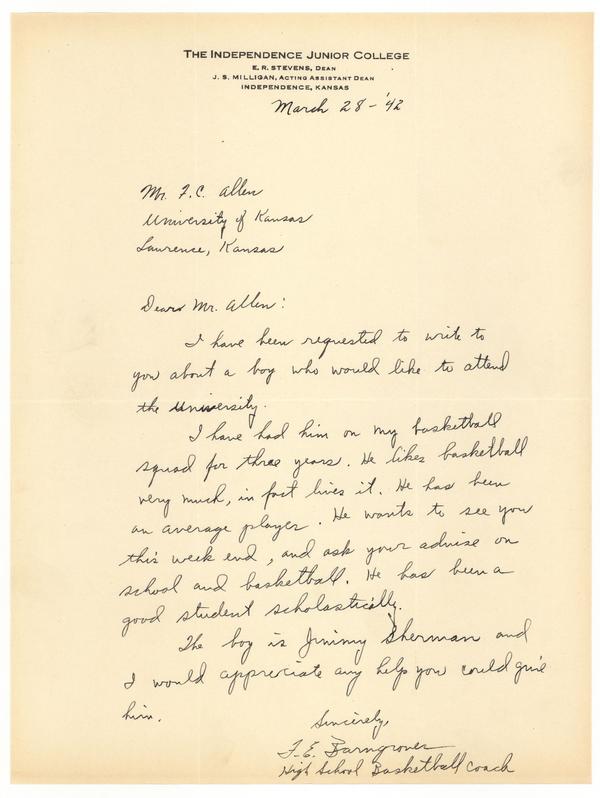 THE INDEPENDENCE JUNIOR COLLEGE
E. R. STEVENS, DEAN
J. S. MILLIGAN, ACTING ASSISTANT DEAN
INDEPENDENCE, KANSAS
March 28 - '42
Mr. F. C. Allen
University of Kansas
Lawrence, Kansas
Dear Mr. Allen:
I have been requested to write to
you about a boy who would like to attend
the University.
I have had him on my basketball
squad for three years. He likes basketball
very much, in fact lives it. He has been
an average player. He wants to see you
this week end, and ask your advise on
school and basketball. He has been a
good student scholastically.
The boy is Jimmy Sherman and
I would appreciate any help you could give
him.
Sincerely,
F. E. Barngrover
High School Basketball Coach